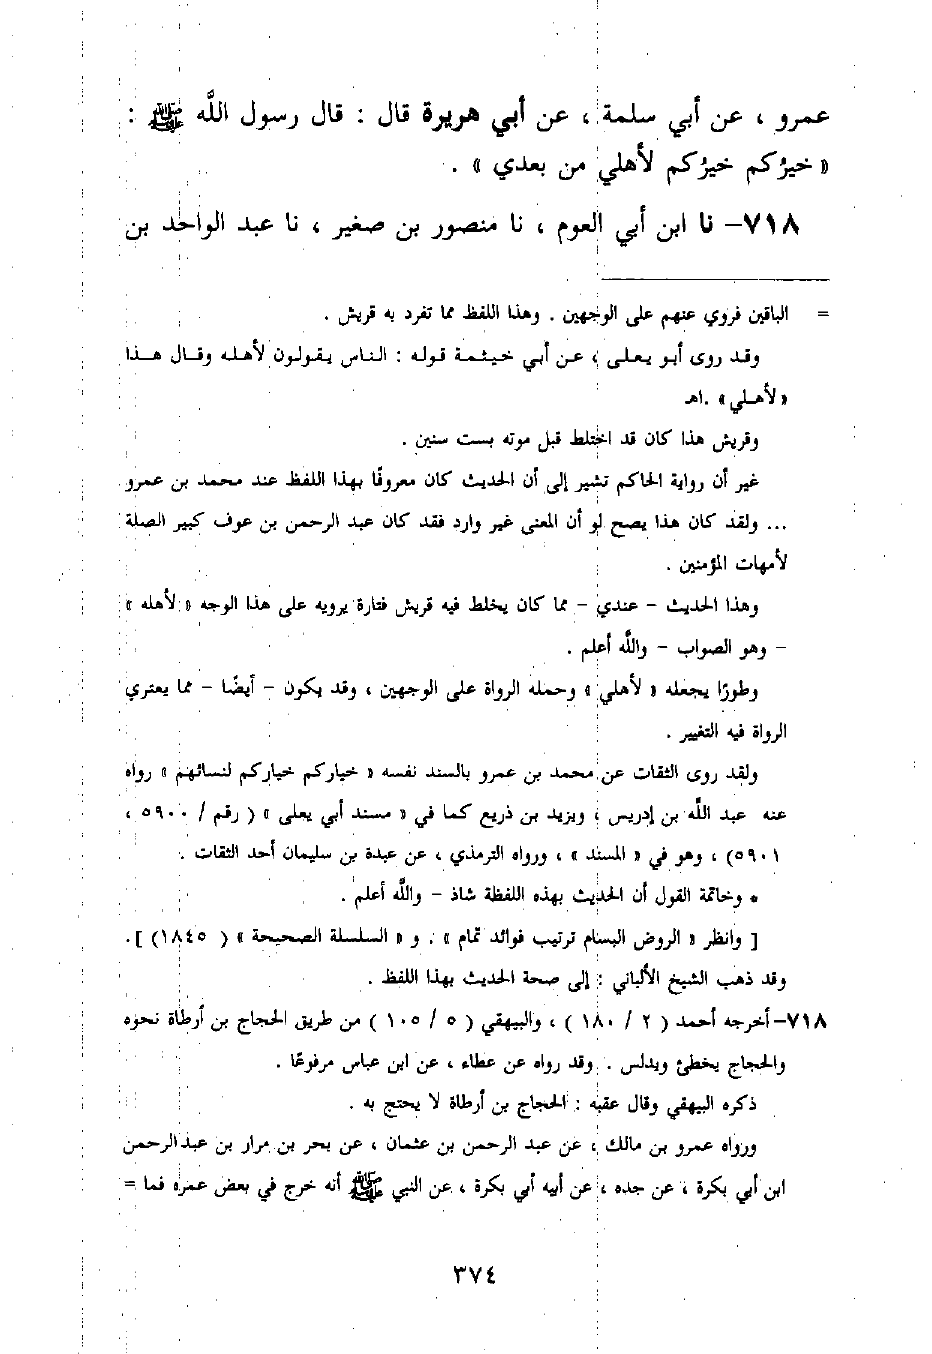 عمرو ، عن أبي سلمة ، عن أبي هريرة قال : قال رسول اللَّه ﷺ :
« خيرُكم خيرُكم لأهلي من بعدي » .
٧١٨– نا ابن أبي العوم ، نا منصور بن صغير ، نا عبد الواحد بن
= الباقين فروي عنهم على الوجهين . وهذا اللفظ مما تفرد به قريش .
وقد روى أبو يعلى ، عن أبي خيثمة قوله : الناس يقولون لأهله وقال هذا
«لأهلي» .اهـ
وقريش هذا كان قد اختلط قبل موته بست سنين .
غير أن رواية الحاكم تشير إلى أن الحديث كان معروفًا بهذا اللفظ عند محمد بن عمرو
... ولقد كان هذا يصح لو أن المعنى غير وارد فقد كان عبد الرحمن بن عوف كبير الصلة
لأمهات المؤمنين .
وهذا الحديث – عندي – مما كان يخلط فيه قريش فتارة يرويه على هذا الوجه « لأهله »
– وهو الصواب – واللَّه أعلم .
وطورًا يجعله « لأهلي » وحمله الرواة على الوجهين ، وقد يكون – أيضًا – مما يعتري
الرواة فيه التغيير .
ولقد روى الثقات عن محمد بن عمرو بالسند نفسه « خياركم خياركم لنسائهم » رواه
عنه عبد اللَّه بن إدريس ، ويزيد بن ذريع كما في « مسند أبي يعلى » ( رقم / ٥٩٠٠ ،
٥٩٠١) ، وهو في « المسند » ، ورواه الترمذي ، عن عبدة بن سليمان أحد الثقات .
* وخاتمة القول أن الحديث بهذه اللفظة شاذ – واللَّه أعلم .
[ وانظر « الروض البسام ترتيب فوائد تمام » . و « السلسلة الصحيحة » ( ١٨٤٥) ].
وقد ذهب الشيخ الألباني : إلى صحة الحديث بهذا اللفظ .
٧١٨– أخرجه أحمد ( ٢ / ١٨٠ ) ، والبيهقي ( ٥ / ١٠٥ ) من طريق الحجاج بن أرطاة نحوه
والحجاج يخطئ ويدلس . وقد رواه عن عطاء ، عن ابن عباس مرفوعًا .
ذكره البيهقي وقال عقبه : الحجاج بن أرطاة لا يحتج به .
ورواه عمرو بن مالك ، عن عبد الرحمن بن عثمان ، عن بحر بن مرار بن عبد الرحمن
ابن أبي بكرة ، عن جده ، عن أبيه أبي بكرة ، عن النبي ﷺ أنه خرج في بعض عمره فما =
٣٧٤